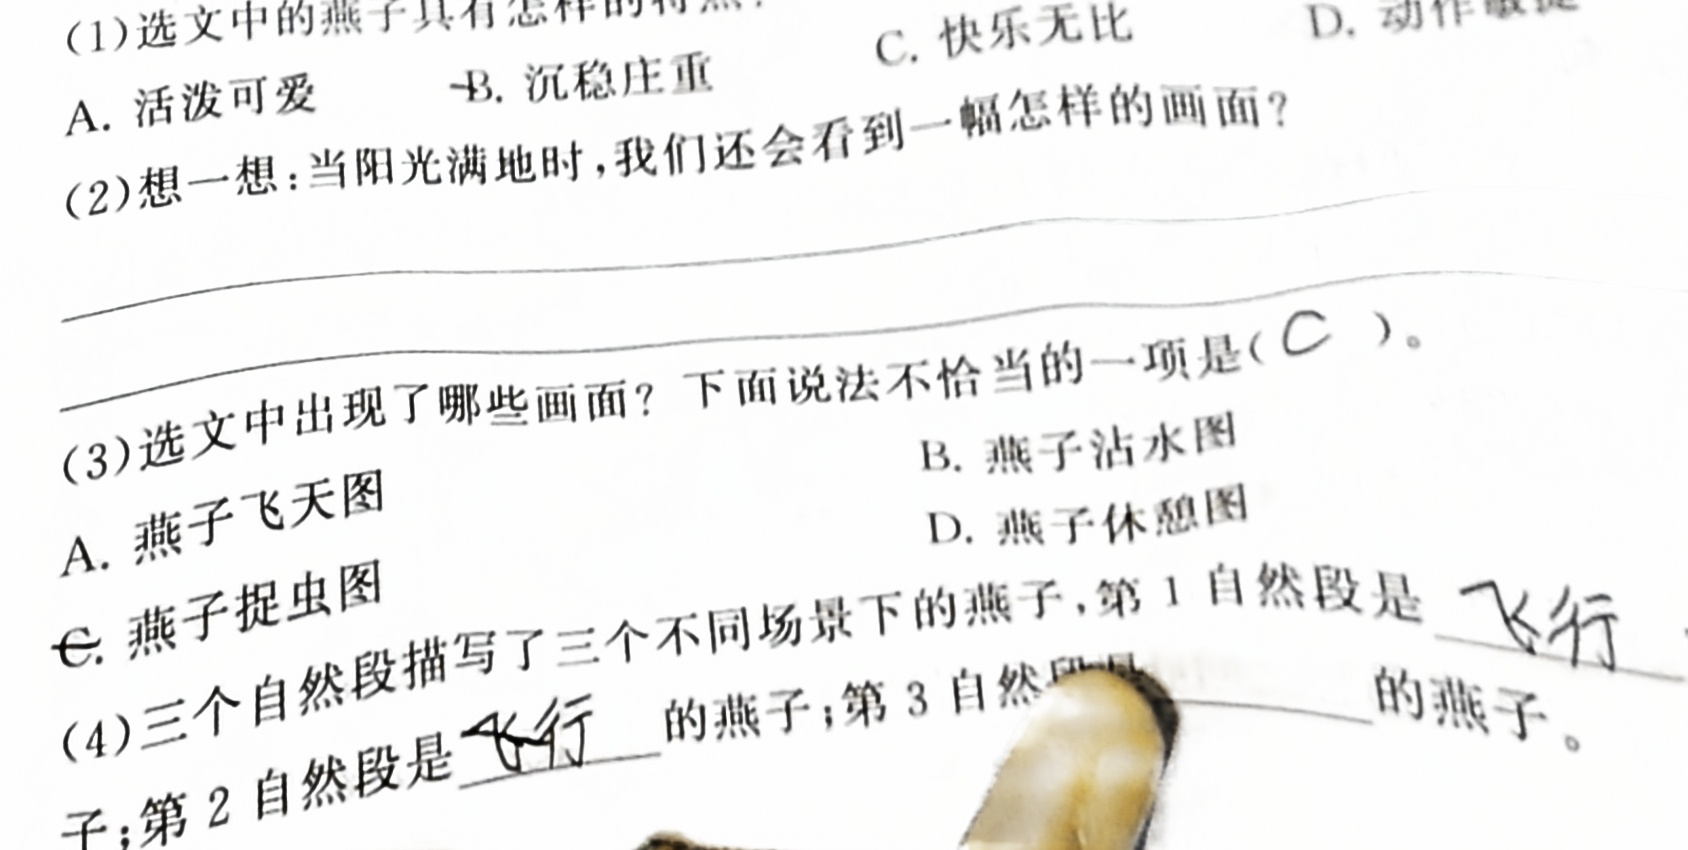 (1)选文中的燕子具有怎样的特点?
A. 活泼可爱 B. 沉稳庄重 C. 快乐无比 D. 动作敏捷
(2)想一想:当阳光满地时,我们还会看到一幅怎样的画面?
(3)选文中出现了哪些画面? 下面说法不恰当的一项是( C )。
A. 燕子飞天图 B. 燕子沾水图
C. 燕子捉虫图 D. 燕子休憩图
(4)三个自然段描写了三个不同场景下的燕子,第 1 自然段是 飞行
子;第 2 自然段是 飞行 的燕子;第 3 自然段是 的燕子。